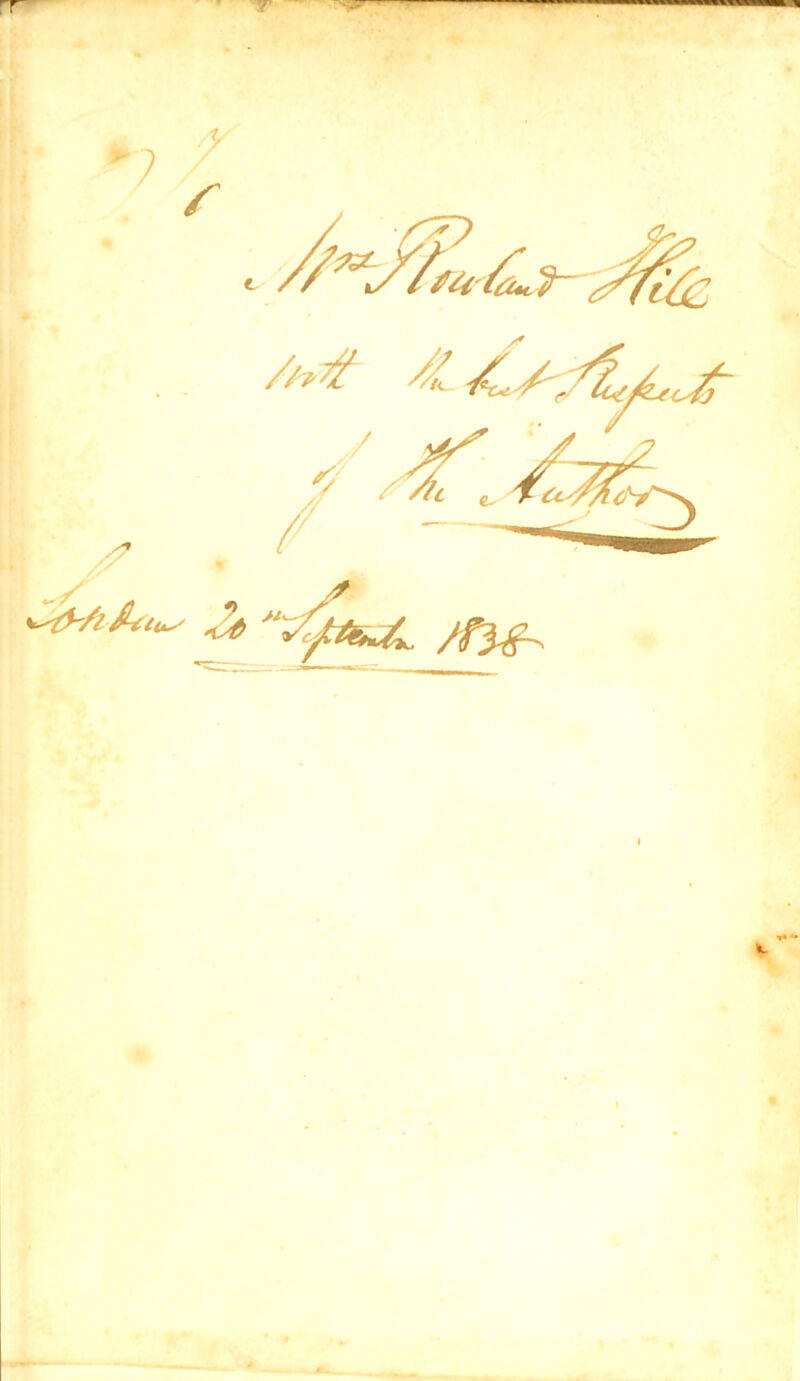 To
Mrs Rowland Hill
with the best Respects
of The Author
London 20th September 1838